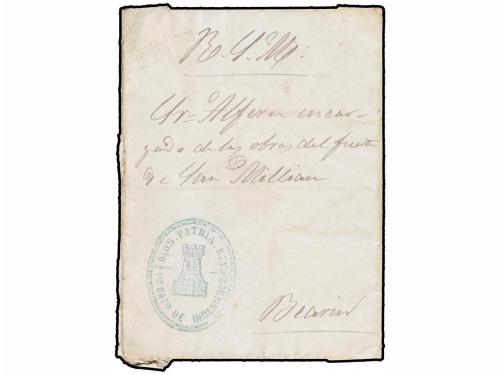 R. S. M.
Sr. Alferez encar-
gado de las obras del fuerte
de San Millian
DIOS. PATRIA. REY.
DE INGENIEROS
Bearin